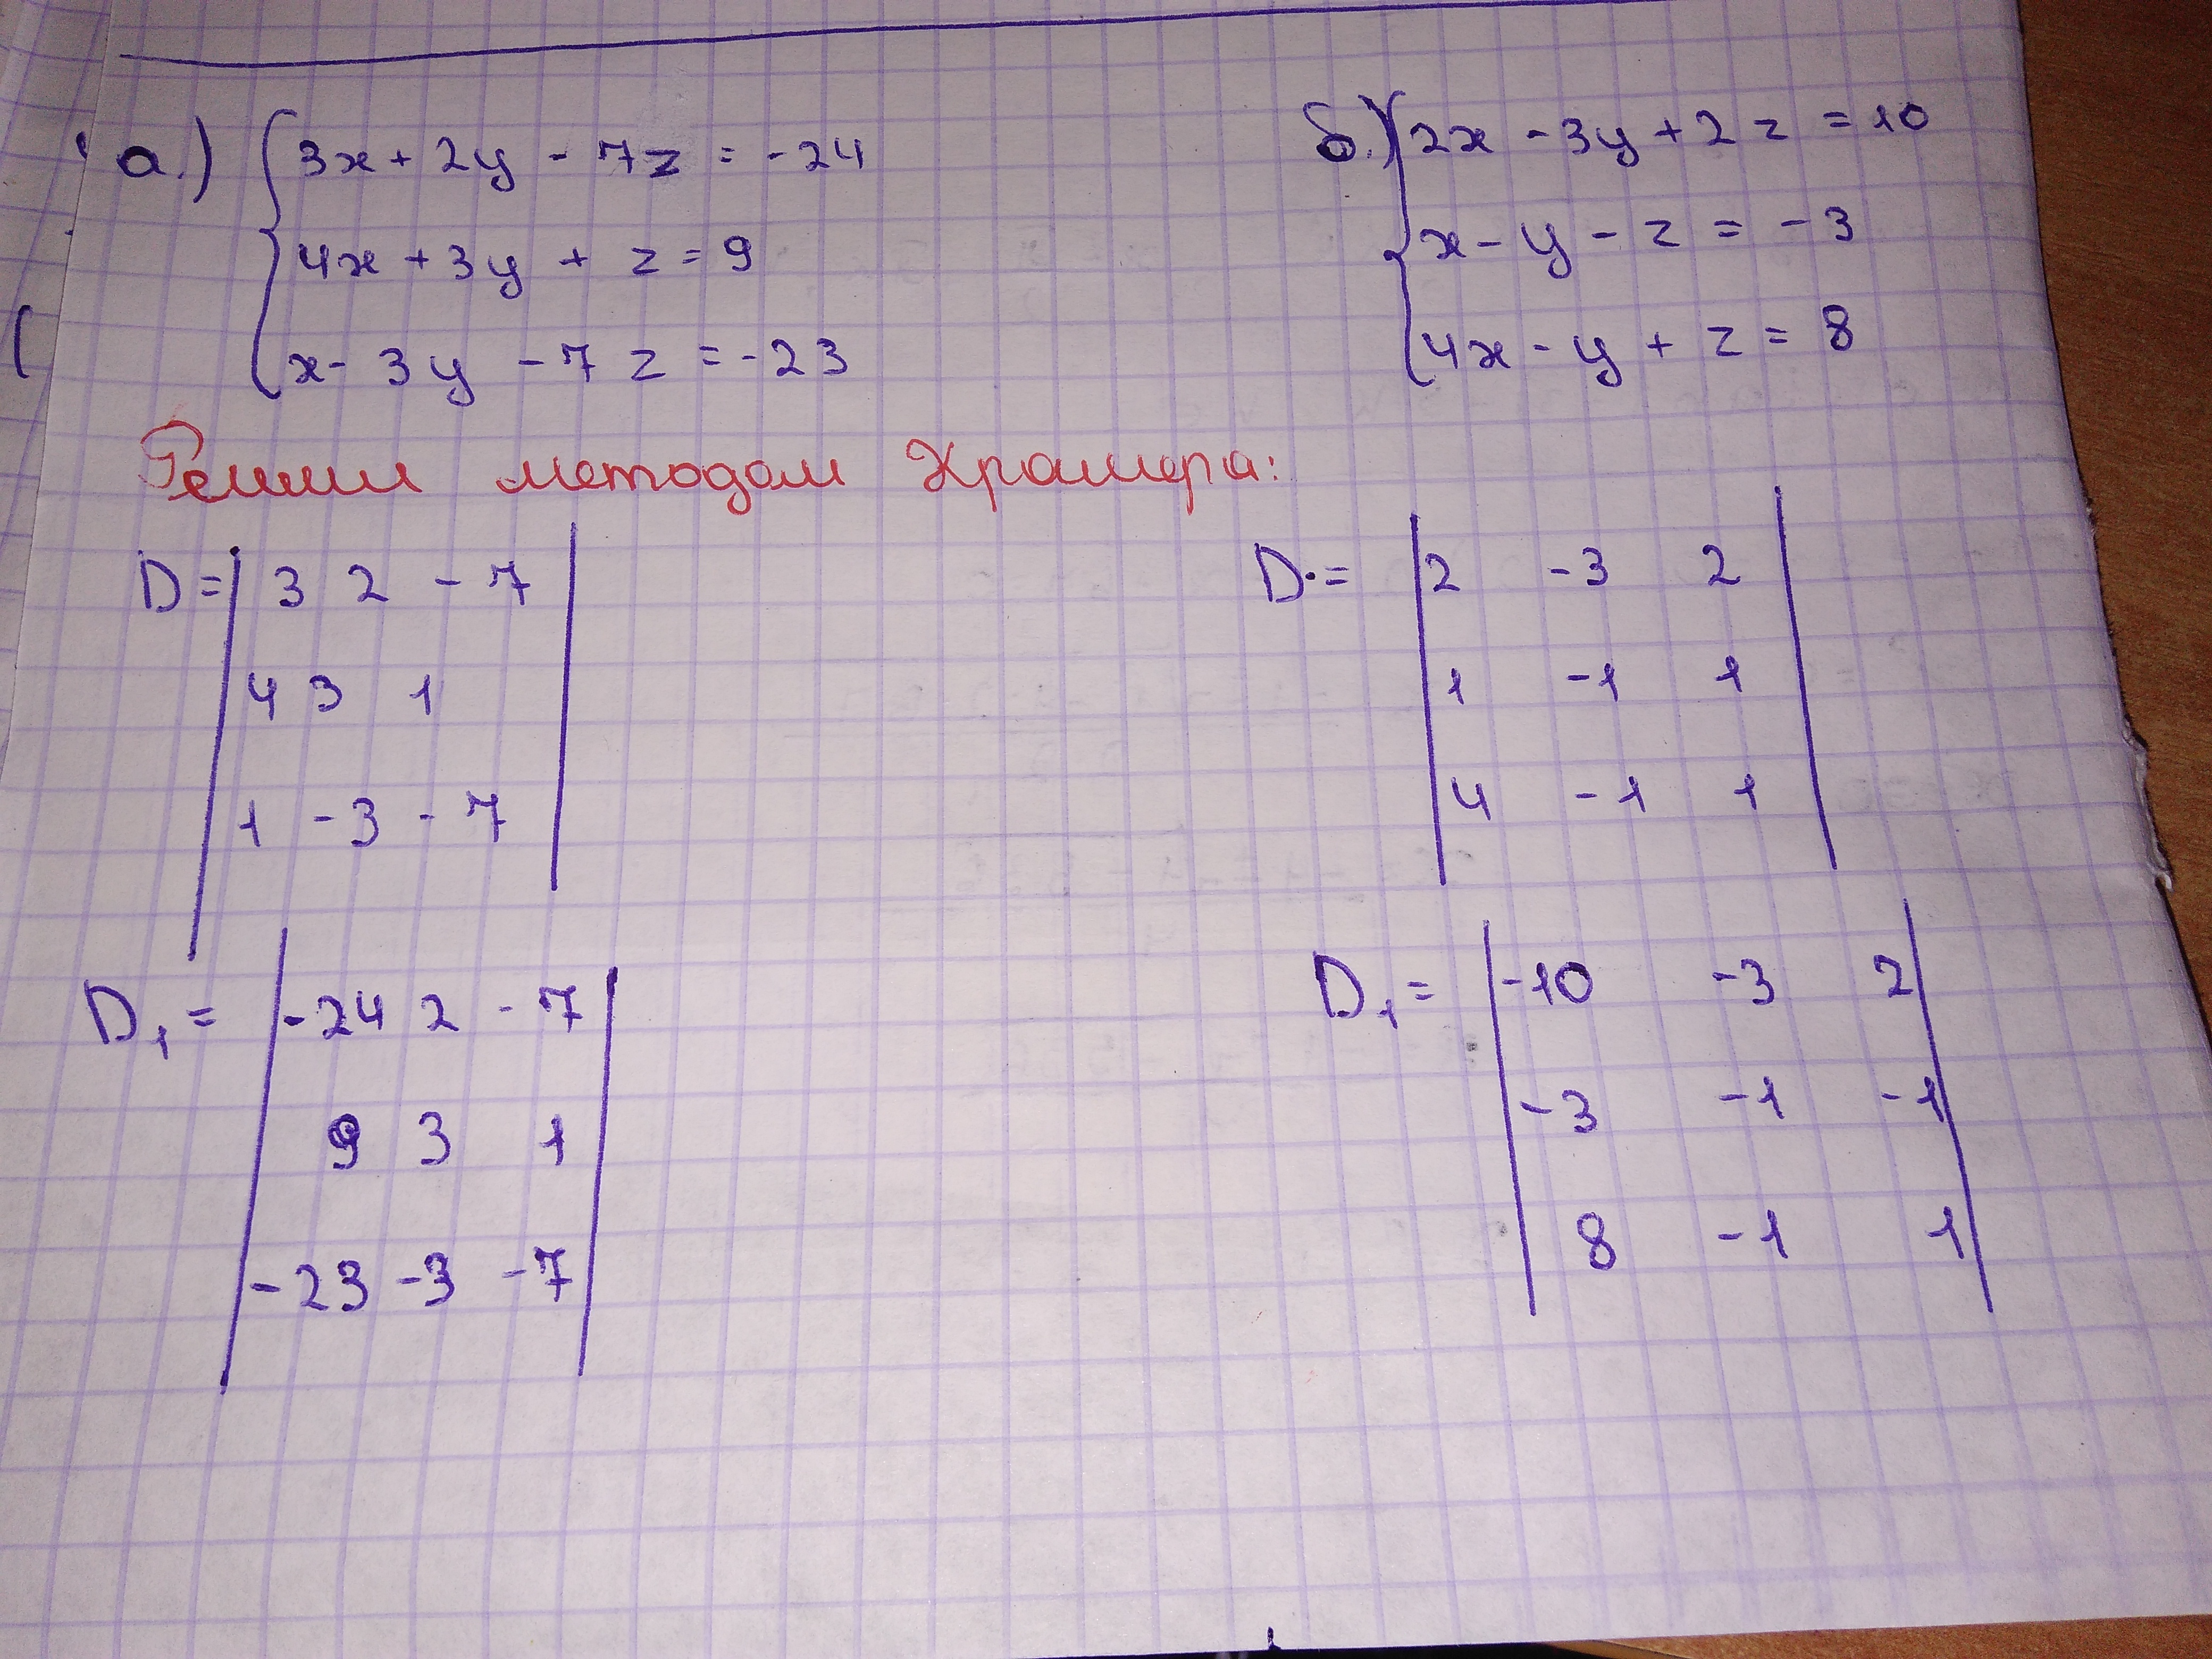 а.) 3x + 2y - 7z = -24
4x + 3y + z = 9
x - 3y - 7z = -23
б.) 2x - 3y + 2z = 10
x - y - z = -3
4x - y + z = 8
Решим методом Крамера:
D = | 3 2 -7 |
4 3 1
1 -3 -7
D. = | 2 -3 2 |
1 -1 1
4 -1 1
D₁ = | -24 2 -7 |
9 3 1
-23 -3 -7
D₁ = | -10 -3 2 |
-3 -1 -1
8 -1 1